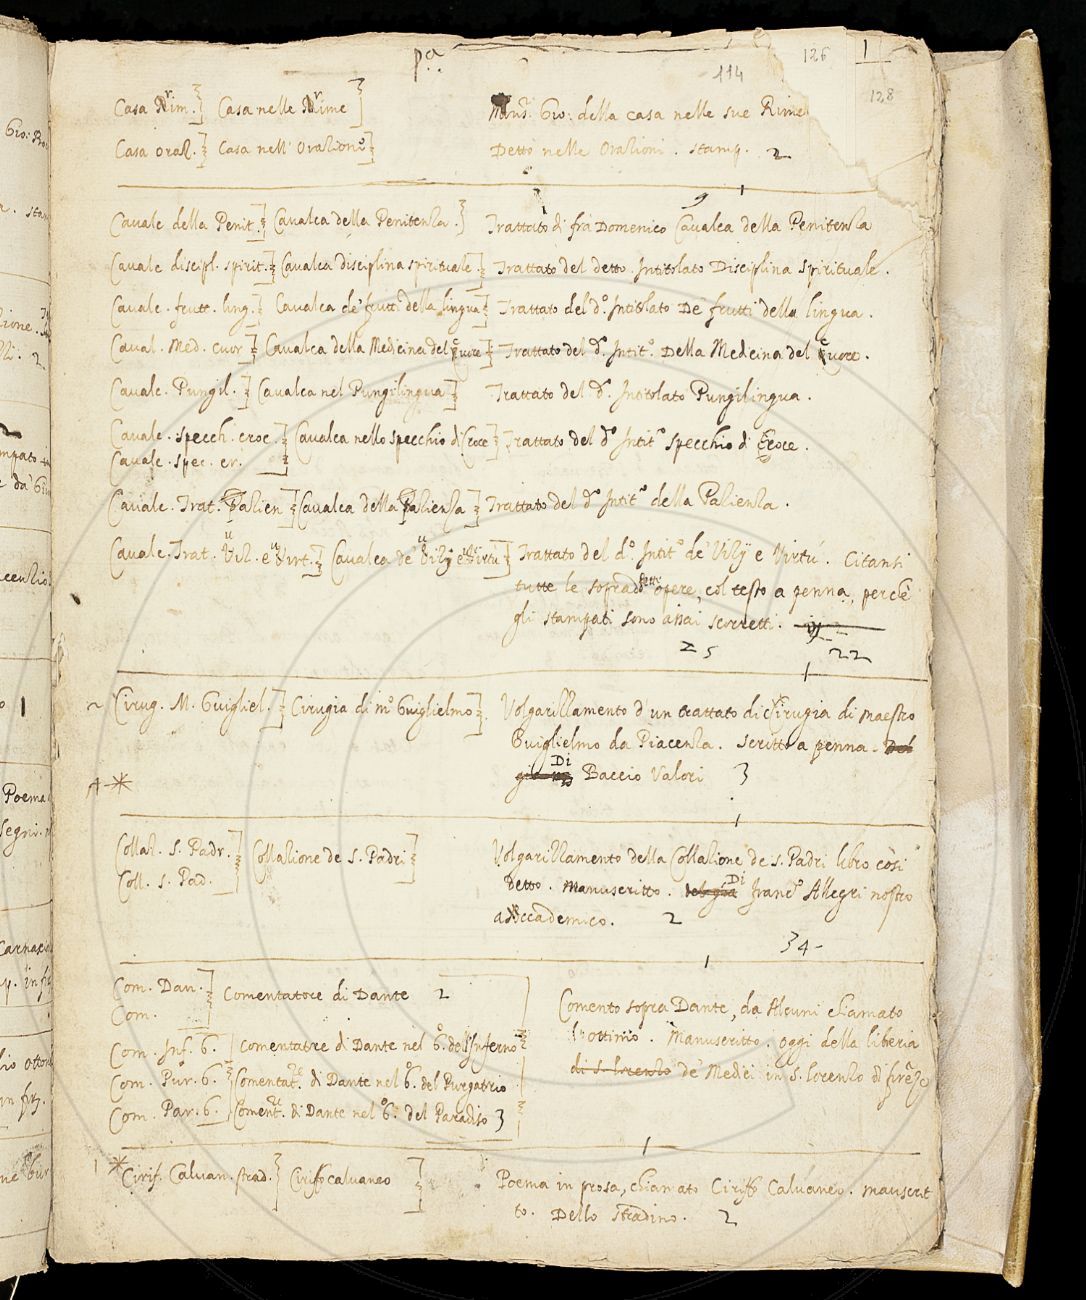 pa.
126 1
114
128
Casa Rim.] Casa nelle Rime] Mons. Gio: della casa nelle sue Rime
Casa Oraz.] Casa nell' Orazione] Detto nelle Orazioni. stamp. 2
Cavalc. della Penit.] Cavalca della Penitenza.] Trattato di fra Domenico Cavalca della Penitenza
Cavalc. discipl. spirit.] Cavalca disciplina spirituale.] Trattato del detto. Intitolato Disciplina spirituale.
Cavalc. frutt. ling.] Cavalca de' frutti della lingua] Trattato del do. Intitolato De' frutti della lingua.
Caval. Med. cuor] Cavalca della Medicina del cuore] Trattato del do. Intito. Della Medicina del Cuore.
Cavalc. Pungil.] Cavalca nel Pungilingua] Trattato del do. Intitolato Pungilingua.
Cavalc. specch. croc.] Cavalca nello specchio di Croce] Trattato del do Intito specchio di Croce.
Cavalc. spec. cr.
Cavalc. Trat. Pazien] Cavalca della Pazienza] Trattato del do Intito della Pazienza.
Cavalc. Trat. Viz. e Virt.] Cavalca de' Vizij e Virtù] Trattato del do. Intito de' Vizij e Virtù. Citansi
tutte le sopradette opere, col testo a penna, perchè
gli stampati sono assai scorretti.
25 22
Cirug. M. Guigliel.] Cirugia di mo Guiglielmo] Volgarizzamento d'un trattato di Cirugia di maestro
Guiglielmo da Piacenza. scritto a penna. Del
Di Baccio Valori 3
Collaz. S. Padr.] Collazione de S. Padri] Volgarizzamento della Collazione de' S. Padri libro così
Coll. S. Pad. detto. Manuscritto. Di Franco Allegri nostro
Accademico. 2
34
Com. Dan.] Comentatore di Dante 2 Comento sopra Dante, da Alcuni chiamato
Com. l'ottimo. Manuscritto. oggi della libreria
Com. Inf. 6. Comentatre di Dante nel 6o. dell'Inferno di S. Lorenzo de' Medici in S. Lorenzo di fireze
Com. Pur. 6. Comentat. di Dante nel 6. del Purgatrio
Com. Par. 6. Coment. di Dante nel 6o. del Paradiso 3
1 * Cirif. Calvan. strad.] Ciriffo calvaneo] Poema in prosa, chiamato Ciriffo Calvaneo. manuscrit
to. Dello Stradino. 2